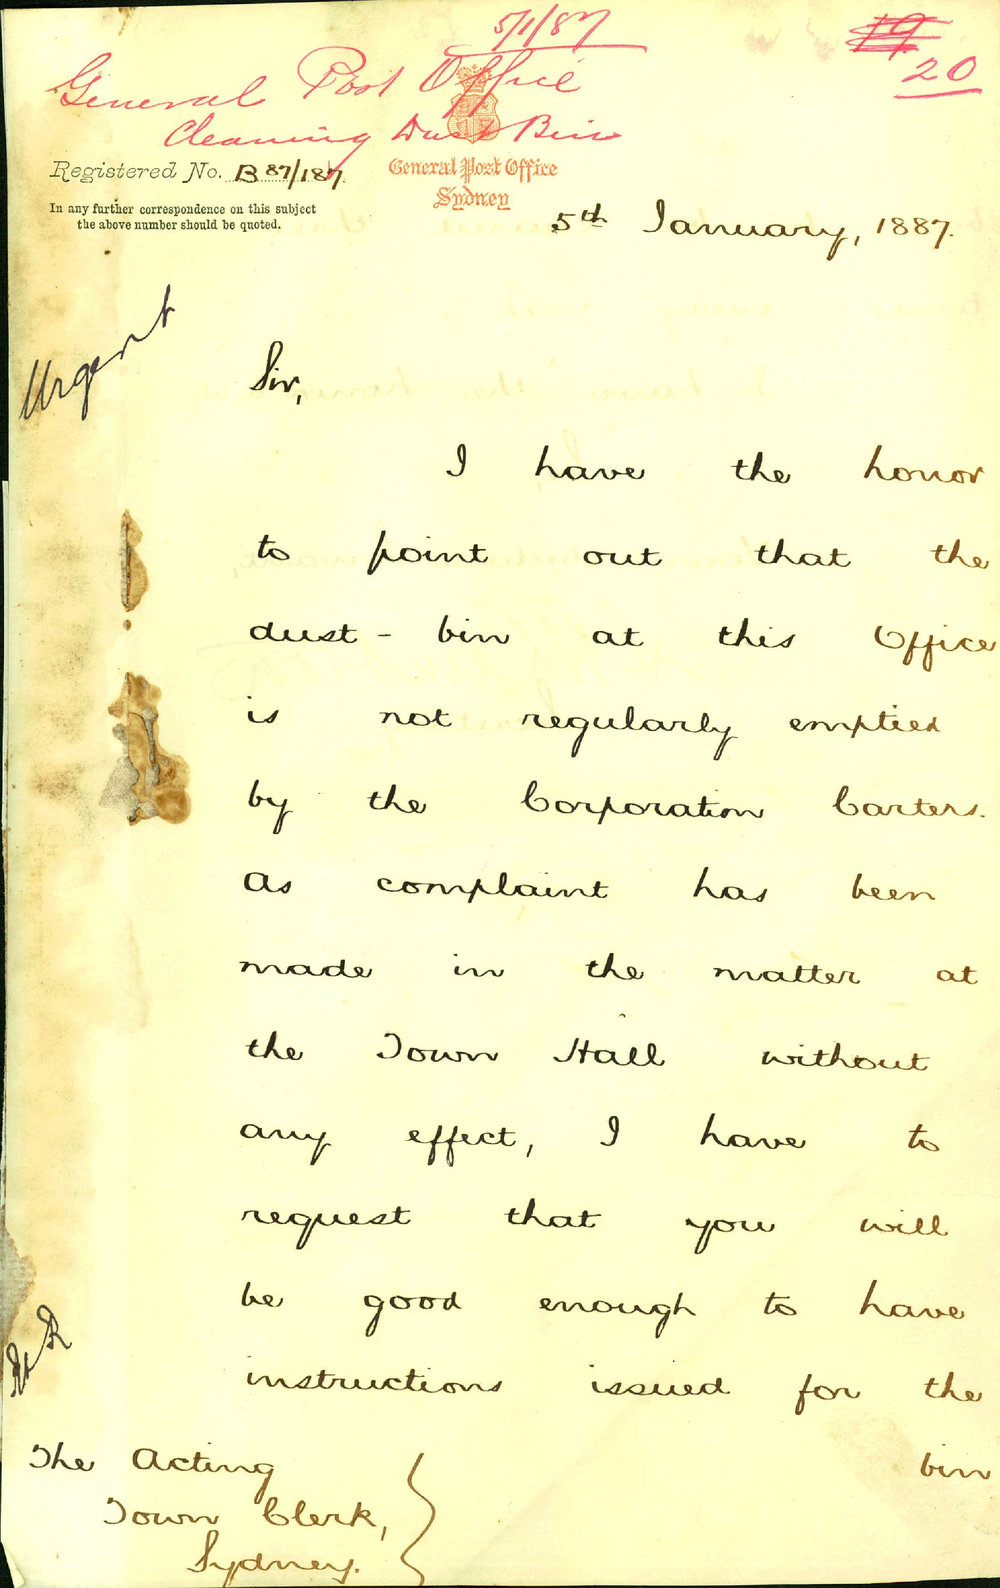 5/1/87
19
20
General Post Office
Cleaning Dust Bin
Registered No. B 87/187
General Post Office
Sydney
In any further correspondence on this subject
the above number should be quoted.
5th January, 1887.
Urgent
Sir,
I have the honor
to point out that the
dust-bin at this Office
is not regularly emptied
by the Corporation Carters.
As complaint has been
made in the matter at
the Town Hall without
any effect, I have to
request that you will
be good enough to have
instructions issued for the
bin
The Acting
Town Clerk,
Sydney.